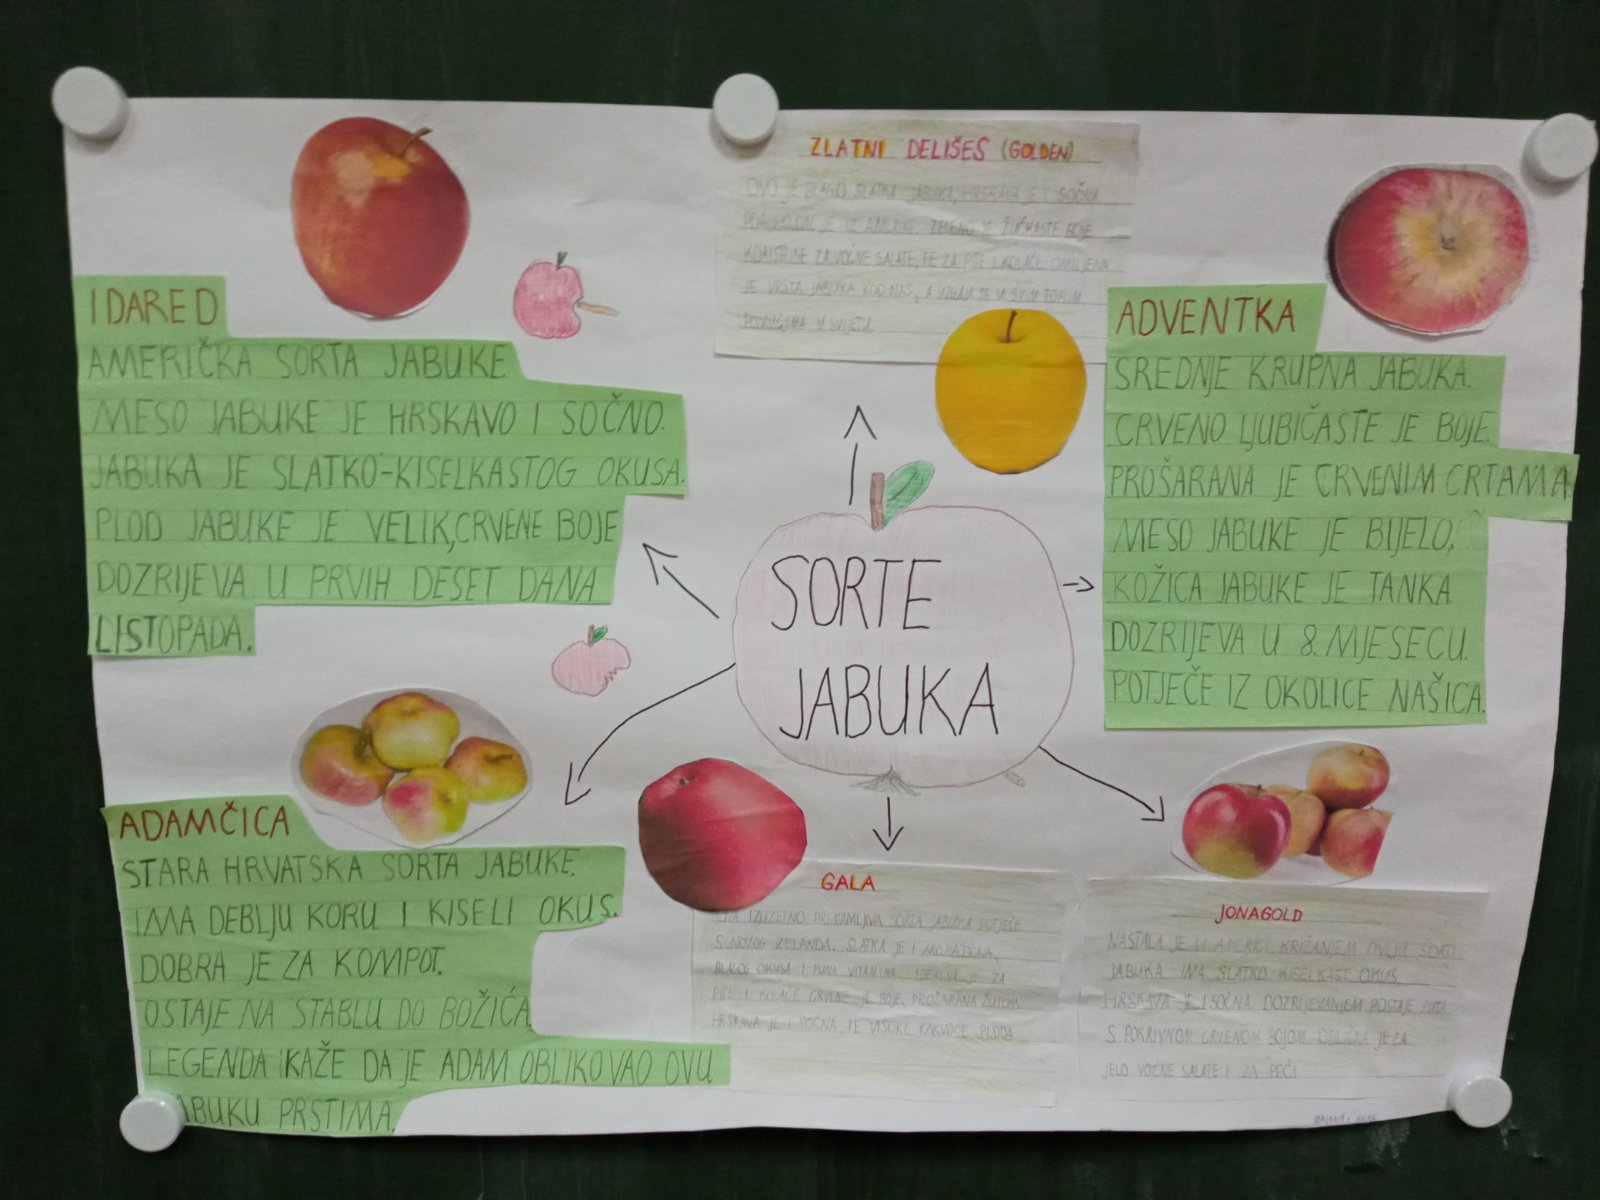 SORTE
JABUKA
IDARED
AMERIČKA SORTA JABUKE
MESO JABUKE JE HRSKAVO I SOČNO.
JABUKA JE SLATKO-KISELKASTOG OKUSA.
PLOD JABUKE JE VELIK, CRVENE BOJE
DOZRIJEVA U PRVIH DESET DANA
LISTOPADA.
ZLATNI DELIŠES (GOLDEN)
OVO JE BLAGO SLATKA JABUKA, HRSKAVA JE I SOČNA
PORIJEKLOM JE IZ AMERIKE. ZELENO JE ŽUĆKASTE BOJE
KORISTI SE ZA VOĆNE SALATE, TE ZA PITE I KOLAČE OMILJENA
JE VRSTA JABUKA KOD NAS, A UZGAJA SE U SVIM TOPLIM
PODRUČJIMA U SVIJETU.
ADVENTKA
SREDNJE KRUPNA JABUKA.
CRVENO LJUBIČASTE JE BOJE.
PROŠARANA JE CRVENIM CRTAMA.
MESO JABUKE JE BIJELO,
KOŽICA JABUKE JE TANKA
DOZRIJEVA U 8. MJESECU.
POTJEČE IZ OKOLICE NAŠICA.
ADAMČICA
STARA HRVATSKA SORTA JABUKE.
IMA DEBLJU KORU I KISELI OKUS.
DOBRA JE ZA KOMPOT.
OSTAJE NA STABLU DO BOŽIĆA
LEGENDA KAŽE DA JE ADAM OBLIKOVAO OVU
JABUKU PRSTIMA.
GALA
OVA IZUZETNO PRIMAMLJIVA SORTA JABUKA POTJEČE
S NOVOG ZELANDA. SLATKA JE I AROMATIČNA,
BLAGOG OKUSA I PUNA VITAMINA. IDEALNA JE ZA
PITE I KOLAČE CRVENE JE BOJE, PROŠARANA ŽUTOM
HRSKAVA JE I SOČNA, TE VISOKE KAKVOĆE PLODA.
JONAGOLD
NASTALA JE U AMERICI KRIŽANJEM OVIJU SORTI
JABUKA. IMA SLATKO KISELKAST OKUS.
HRSKAVA JE I SOČNA DOZRIJEVANJEM POSTAJE ŽUTA
S POKRIVNOM CRVENOM BOJOM. ODLIČNA JE ZA
JELO VOĆNE SALATE I ZA PEĆI